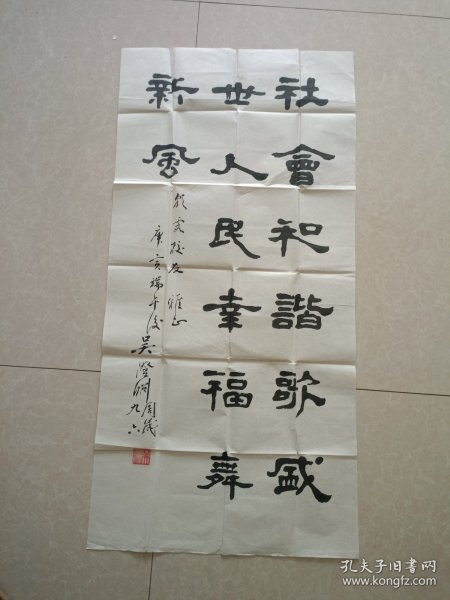 社會和諧歌盛
世人民幸福舞
新風
校友 雅正
庚寅端午後吴澄渊周歲九六
孔夫子旧书网
www.kongfz.com